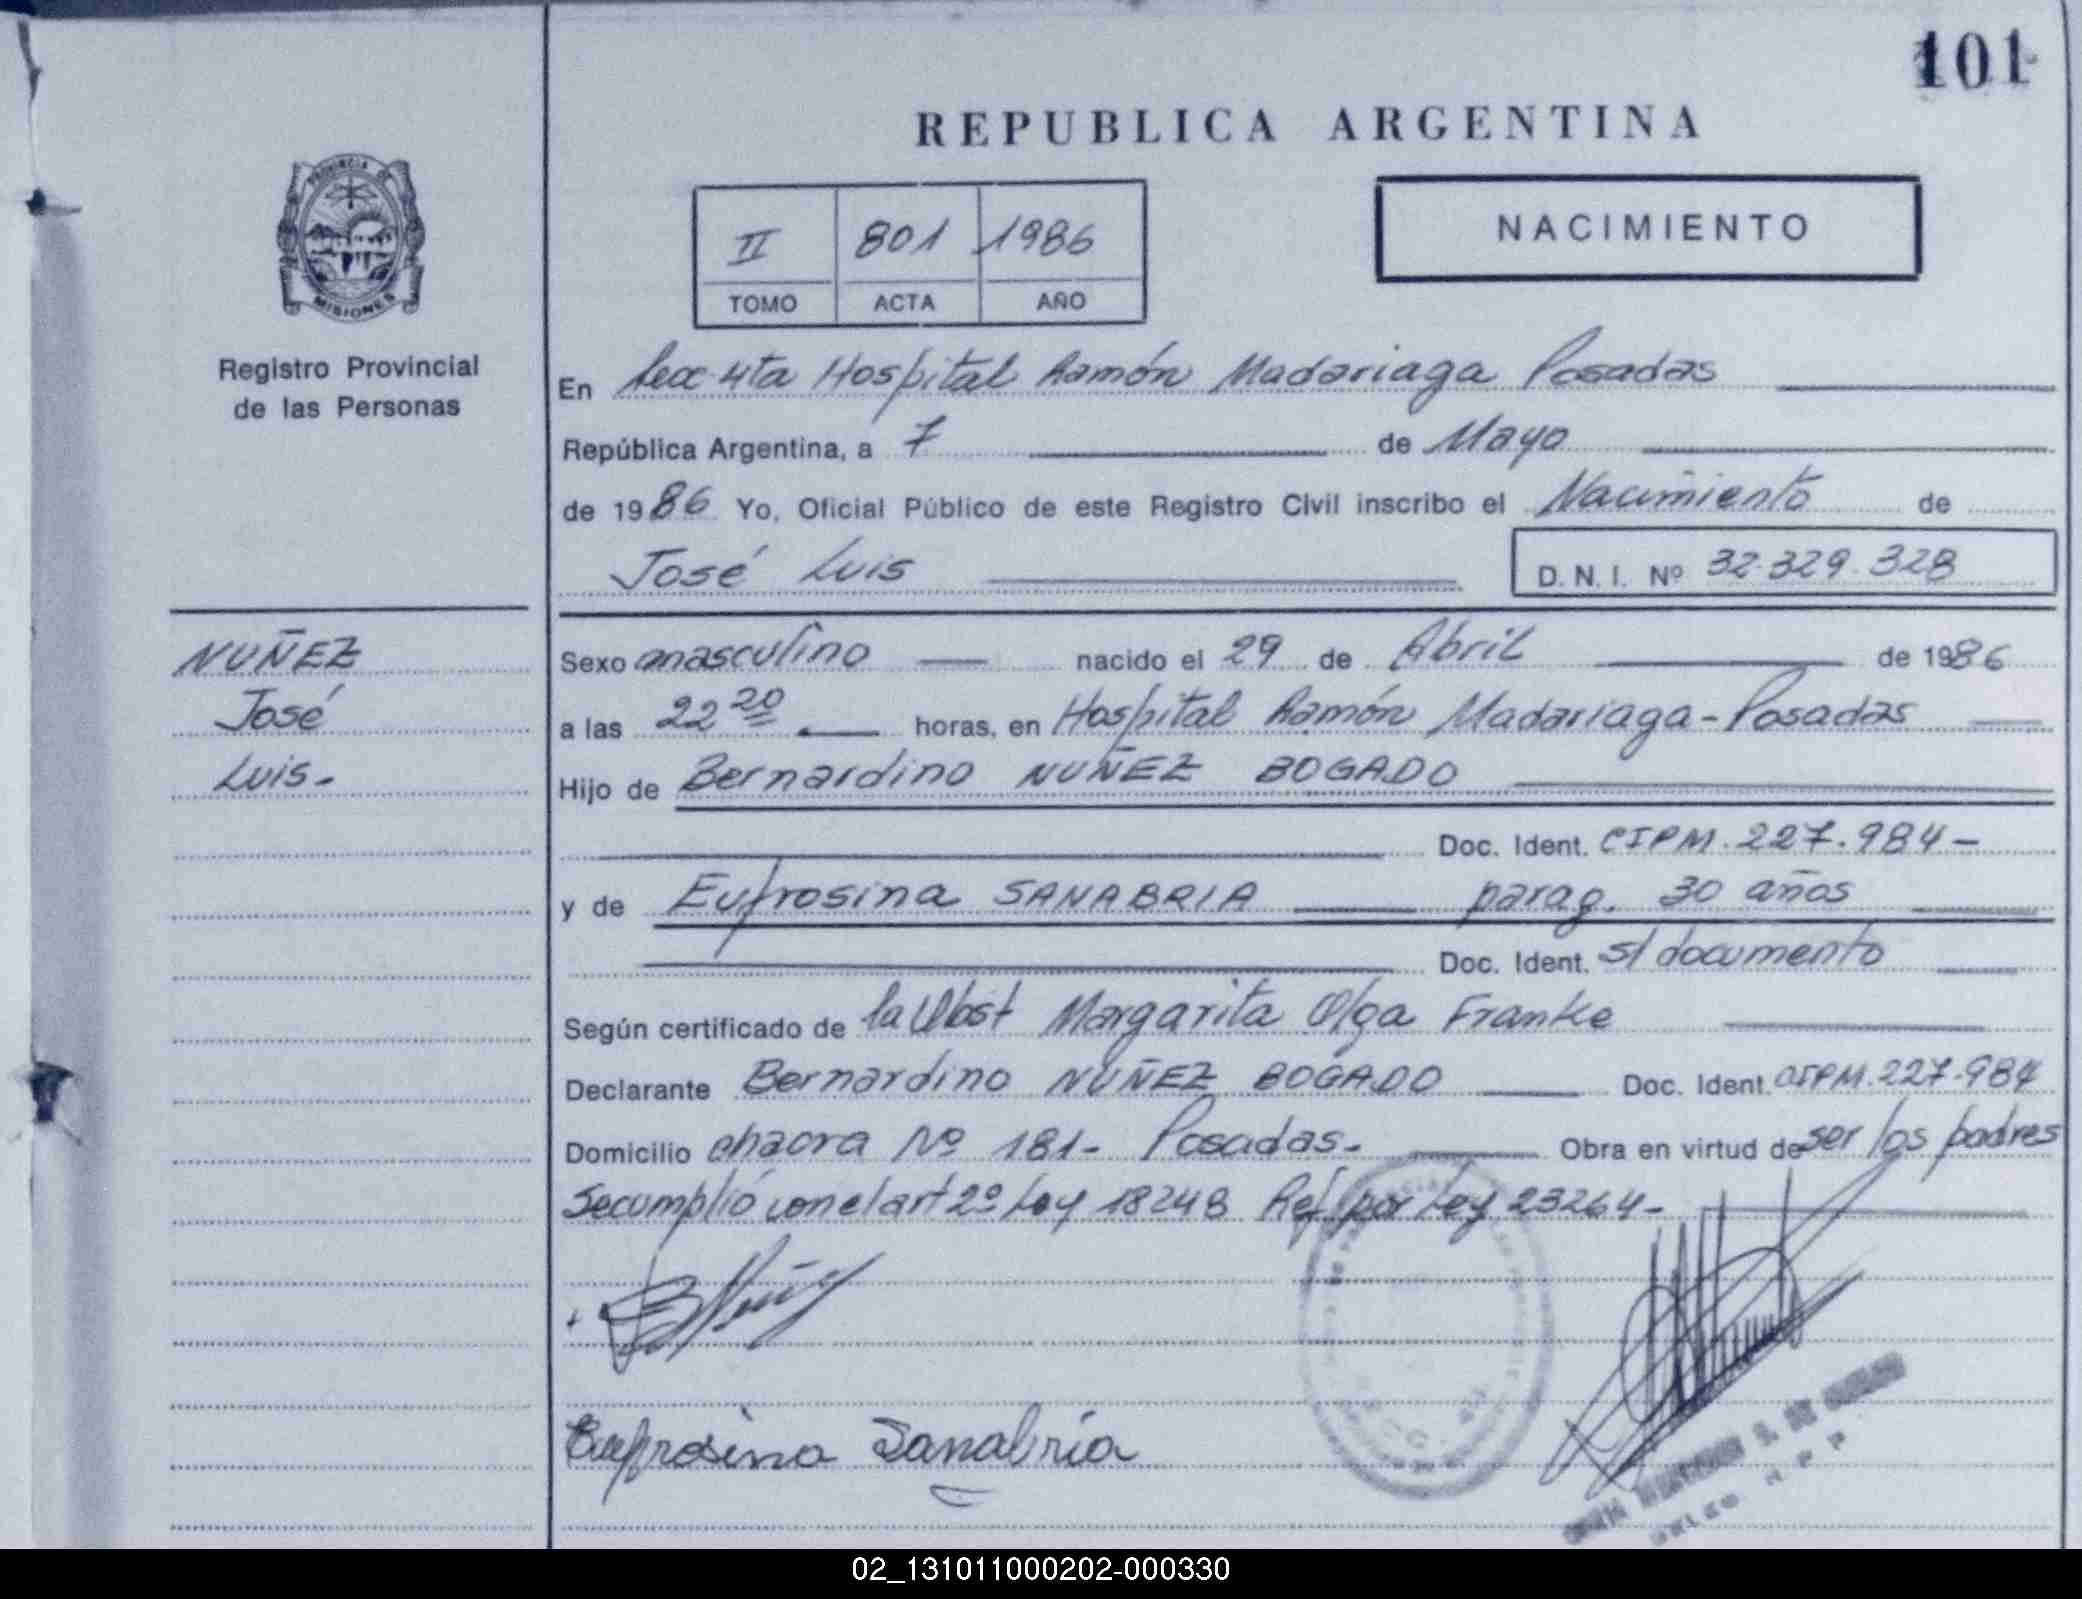 101
REPUBLICA ARGENTINA
PROVINCIA DE
MISIONES
II 801 1986
TOMO ACTA AÑO
NACIMIENTO
Registro Provincial
de las Personas
En Secc 4ta Hospital Ramón Madariaga Posadas
República Argentina, a 7 de Mayo
de 1986 Yo, Oficial Público de este Registro Civil inscribo el Nacimiento de
José Luis D. N. I. Nº 32.329.328
NUÑEZ
José
Luis.-
Sexo masculino nacido el 29 de Abril de 1986
a las 22 20 horas, en Hospital Ramón Madariaga - Posadas
Hijo de Bernardino NUÑEZ BOGADO
Doc. Ident. CIPM. 227.984 -
y de Eufrosina SANABRIA parag. 30 años
Doc. Ident. s/documento
Según certificado de la Obst Margarita Olga Franke
Declarante Bernardino NUÑEZ BOGADO Doc. Ident. CIPM. 227.984
Domicilio chacra Nº 181- Posadas.- Obra en virtud de ser los padres
Secumplió con el art 2º Ley 18248 Ref por Ley 23264-
Eufrosina Sanabria
02_131011000202-000330